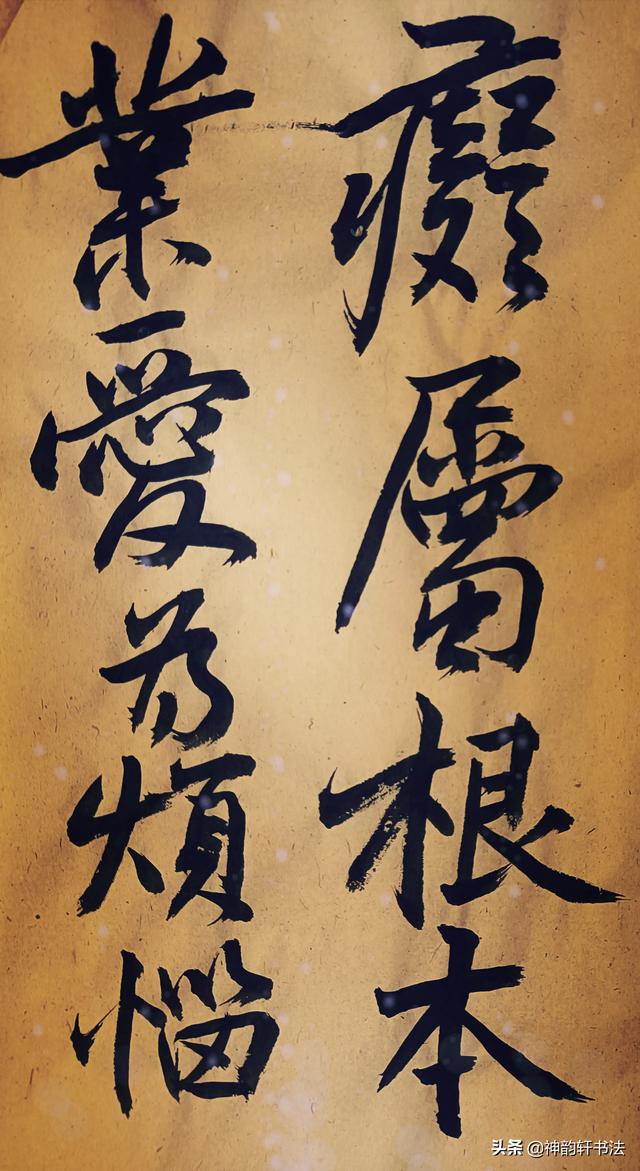 癡屬根本
業愛為煩惱
头条 @神韵轩书法